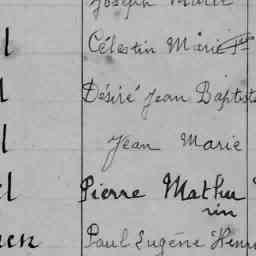 Joseph Marie
l Célestin Marie
l Désiré Jean Baptiste
l Jean Marie
el Pierre Mathu
rin
nen Paul Eugène Henri